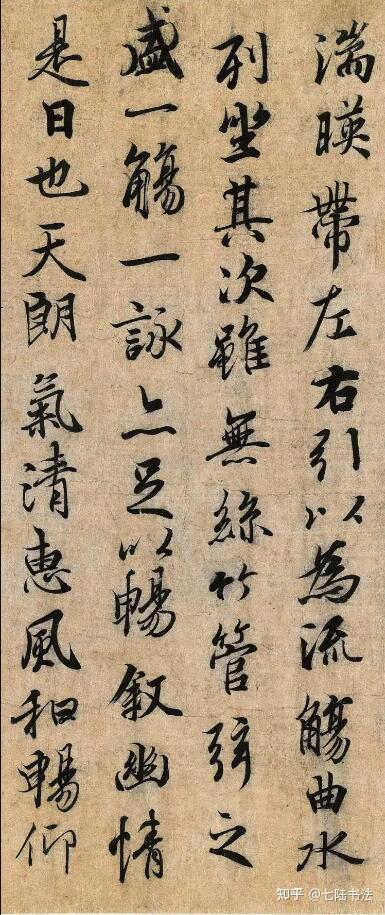 湍暎帶左右引以為流觴曲水
列坐其次雖無絲竹管弦之
盛一觴一詠亦足以暢敘幽情
是日也天朗氣清惠風和暢仰
知乎 @七陆书法